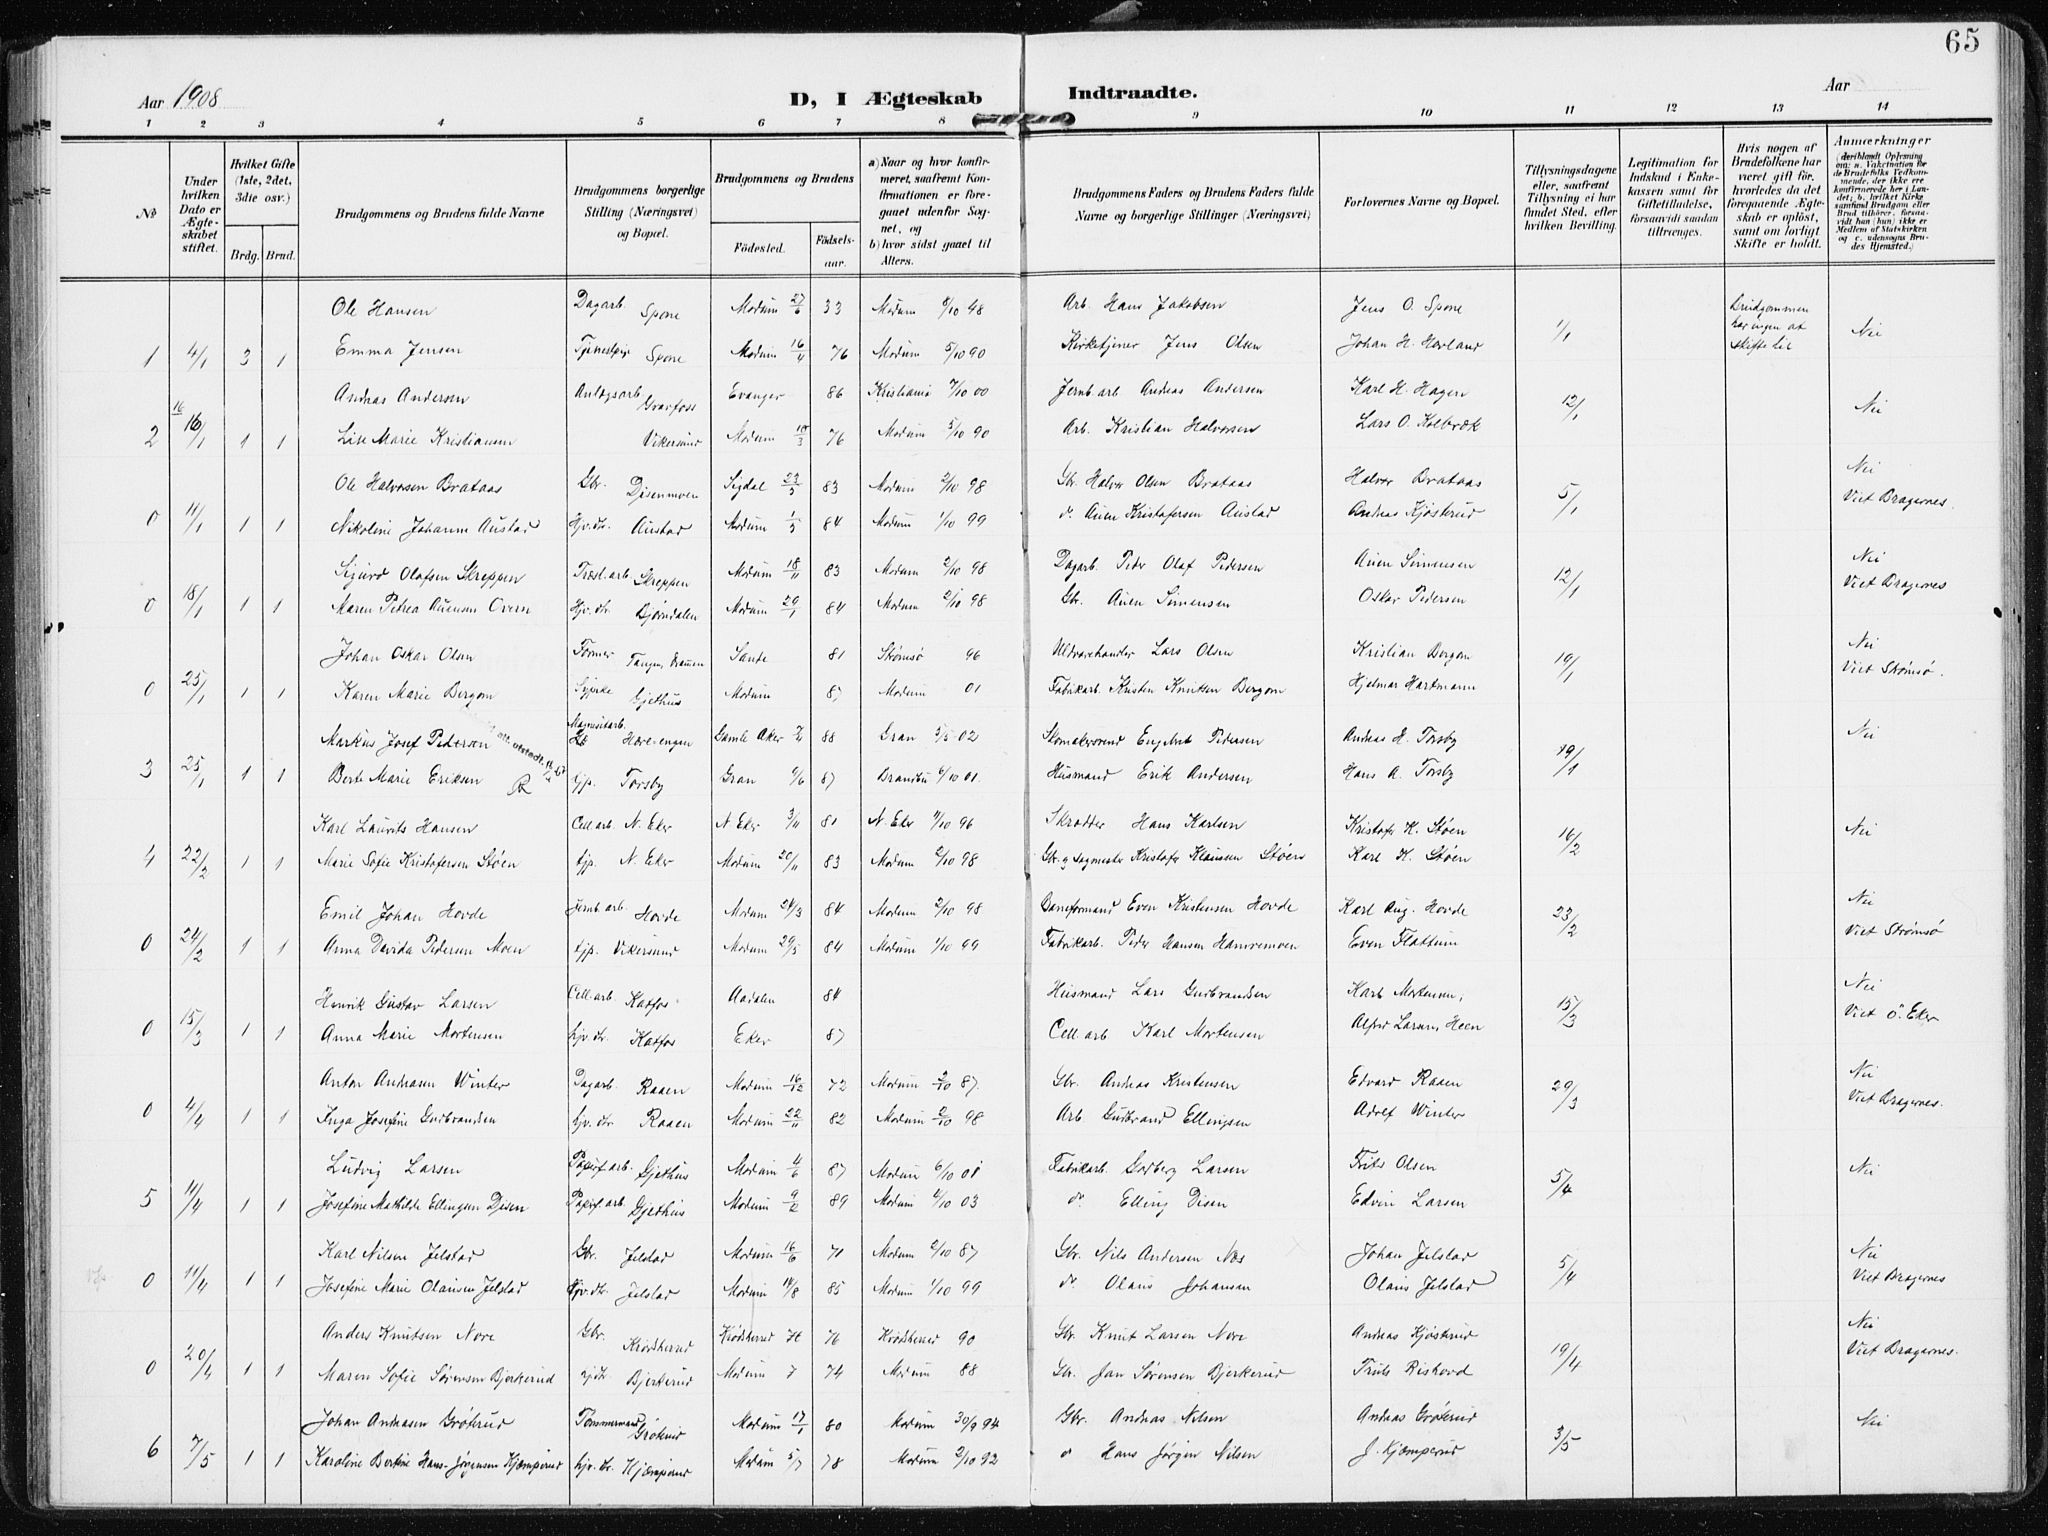 65
Aar 1908
D, I Ægteskab Indtraadte.
Aar
1 2 3 4 5 6 7 8 9 10 11 12 13 14
No
Under hvilken Dato er Ægteskabet stiftet.
Hvilket Gifte (1ste, 2det, 3die osv.)
Brdg. Brud.
Brudgommens og Brudens fulde Navne
Brudgommens borgerlige Stilling (Næringsvei) og Bopæl.
Brudgommens og Brudens
Fødested.
Fødselsaar.
a) Naar og hvor konfirmeret, saafremt Konfirmationen er foregaaet udenfor Sognet, og
b) hvor sidst gaaet til Alters.
Brudgommens Faders og Brudens Faders fulde Navne og borgerlige Stillinger (Næringsvei)
Forlovernes Navne og Bopæl.
Tillysningsdagene eller, saafremt Tillysning ei har fundet Sted, efter hvilken Bevilling.
Legitimation for Indskud i Enkekassen samt for Giftetilladelse, forsaavidt saadan tiltrænges.
Hvis nogen af Brudefolkene har været gift før, hvorledes da det foregaaende Ægteskab er opløst, samt om lovligt Skifte er holdt.
Anmærkninger (deriblandt Oplysning om: a. Vaksination for de Brudefolks Vedkommende, der ikke ere konfirmerede her i Landet; b. hvilket Kirkesamfund Brudgom eller Brud tilhører, forsaavidt han (hun) ikke er Medlem af Statskirken og c. udensogns Brudes Hjemsted.)
Ole Hansen Dagarb. Spone Modum 27/6 33 Modum 8/10 48 Arb. Hans Jakobsen Jens O. Spone 1/1 Brudgommen har ingen at skifte til Nei
1 4/1 3 1 Emma Jensen Tjenestpige Spone Modum 16/4 76 Modum 5/10 90 Kirketjener Jens Olsen Johan H. Hovland
Andreas Andersen Anlægsarb. Gravfoss Evanger 86 Kristiania 7/10 00 Jernb. arb. Andreas Andersen Karl H. Hagen 12/1 Nei
2 16/1 1 1 Lise Marie Kristiansen Vikersund Modum 18/3 76 Modum 5/10 90 Arb. Kristian Halvorsen Lars O. Kolbræk
Ole Halvorsen Brataas Gbr. Disenmoen Sigdal 23/3 83 Modum 2/10 98 Gbr. Halvor Olsen Brataas Halvor Brataas 5/1 Nei
0 11/1 1 1 Nikoline Johanne Austad Hjv. dtr. Austad Modum 1/3 84 Modum 1/10 99 do. Auen Kristofersen Austad Andreas Kjøsterud Viet Bragernes.
Sigurd Olafsen Skreppen Træsl. arb. Skreppen Modum 18/11 83 Modum 2/10 98 Dagarb. Peder Olaf Pedersen Auen Simensen 12/1 Nei
0 18/1 1 1 Maren Petrea Auensen Overn Hjv. dtr. Bjørndalen Modum 29/1 84 Modum 2/10 98 Gbr. Auen Simensen Oskar Pedersen Viet Bragernes
Johan Oskar Olsen Former Tangen, Drammen Sande 81 Strømsø 96 Uldvarehandler Lars Olsen Kristian Bergom 19/1 Nei
0 25/1 1 1 Karen Marie Bergom Sypike Gjethus Modum 87 Modum 01 Fabrikarb. Kristen Knutsen Bergom Hjelmar Hartmann Viet Strømsø.
Markus Josef Pedersen Magnesitarb. Haverengen Gamle Aker 88 Gran 3/5 02 Skomakersvend Engebret Pedersen Andreas H. Torsby 19/1 Nei
att. utstedt
3 25/1 1 1 Berte Marie Eriksen tjp. Torsby Gran 9/6 87 Brandbu 6/10 01 Husmand Erik Andersen Hans A. Torsby
Karl Laurits Hansen Cell. arb. N. Eker N. Eker 3/11 81 N. Eker 4/10 96 Skrædder Hans Karlsen Kristofer K. Støen 16/2 Nei
4 22/2 1 1 Marie Sofie Kristofersen Støen tjp. N. Eker Modum 20/11 83 Modum 2/10 98 Gbr. & sagmester Kristofer Klausen Støen Karl K. Støen
Emil Johan Hovde Jernb. arb. Hovde Modum 24/3 84 Modum 2/10 98 Baneformand Even Kristensen Hovde Karl Aug. Hovde 23/2 Nei
0 24/2 1 1 Anna Davida Pedersen Moen tjp. Vikersund Modum 29/5 84 Modum 1/10 99 Fabrikarb. Peder Hansen Hansvemoen Even Flattum Viet Strømsø
Henrik Gustav Larsen Cell. arb. Katfos Aadalen 84 Husmand Lars Gudbrandsen Karl Mortensen, 15/3 Nei
0 15/3 1 1 Anna Marie Mortensen hjv. dtr. Katfos Eker 87 Cell. arb. Karl Mortensen Alfred Larsen, Heen Viet Ö. Eker
Anton Andreasen Winter Dagarb. Raaen Modum 16/12 72 Modum 2/10 87. Gbr. Andreas Kristensen Edvard Raaen 29/3 Nei
0 4/4 1 1 Inga Josefine Gudbrandsen hjv. dtr. Raaen Modum 22/11 82 Modum 2/10 98 Arb. Gudbrand Ellingsen Adolf Winter Viet Bragernes.
Ludvig Larsen Papirf. arb. Gjethus Modum 4/6 87 Modum 6/10 01 Fabrikarb. Godberg Larsen Frits Olsen 5/4 Nei
5 11/4 1 1 Josefine Mathilde Ellingsen Disen Papirf. arb. Gjethus Modum 9/2 89 Modum 4/10 03 do. Elling Disen Edvin Larsen
Karl Nilsen Jelstad Gbr. Jelstad Modum 16/6 71 Modum 2/10 87 Gbr. Nils Andersen Næs Johan Jelstad 5/4 Nei
0 11/4 1 1 Josefine Marie Olausen Jelstad Hjv. dtr. Jelstad Modum 14/8 85 Modum 1/10 99 do Olaus Johansen Olaus Jelstad Viet Bragernes
Anders Knutsen Nore Gbr. Krødsherred Krødsherred 76 Krødsherred 90 Gbr. Knut Larsen Nore Andreas Kjøsterud 19/4 Nei
0 20/4 1 1 Maren Sofie Sørensen Bjerkerud hjdtr. Bjerkerud Modum 7 74 Modum 88 Gbr. Jan Sørensen Bjerkerud Truls Rishovd Viet Bragernes.
Johan Andreasen Grøterud Tømmermand Grøterud Modum 17/1 80 Modum 30/9 94 Gbr. Andreas Nilsen Andreas Grøterud 3/5 Nei
6 7/5 1 1 Karoline Bertine Hans-Jørgensen Kjæmperud hjv. dtr. Kjæmperud Modum 5/7 78 Modum 2/10 92 do Hans Jørgen Nilsen J. Kjæmperud